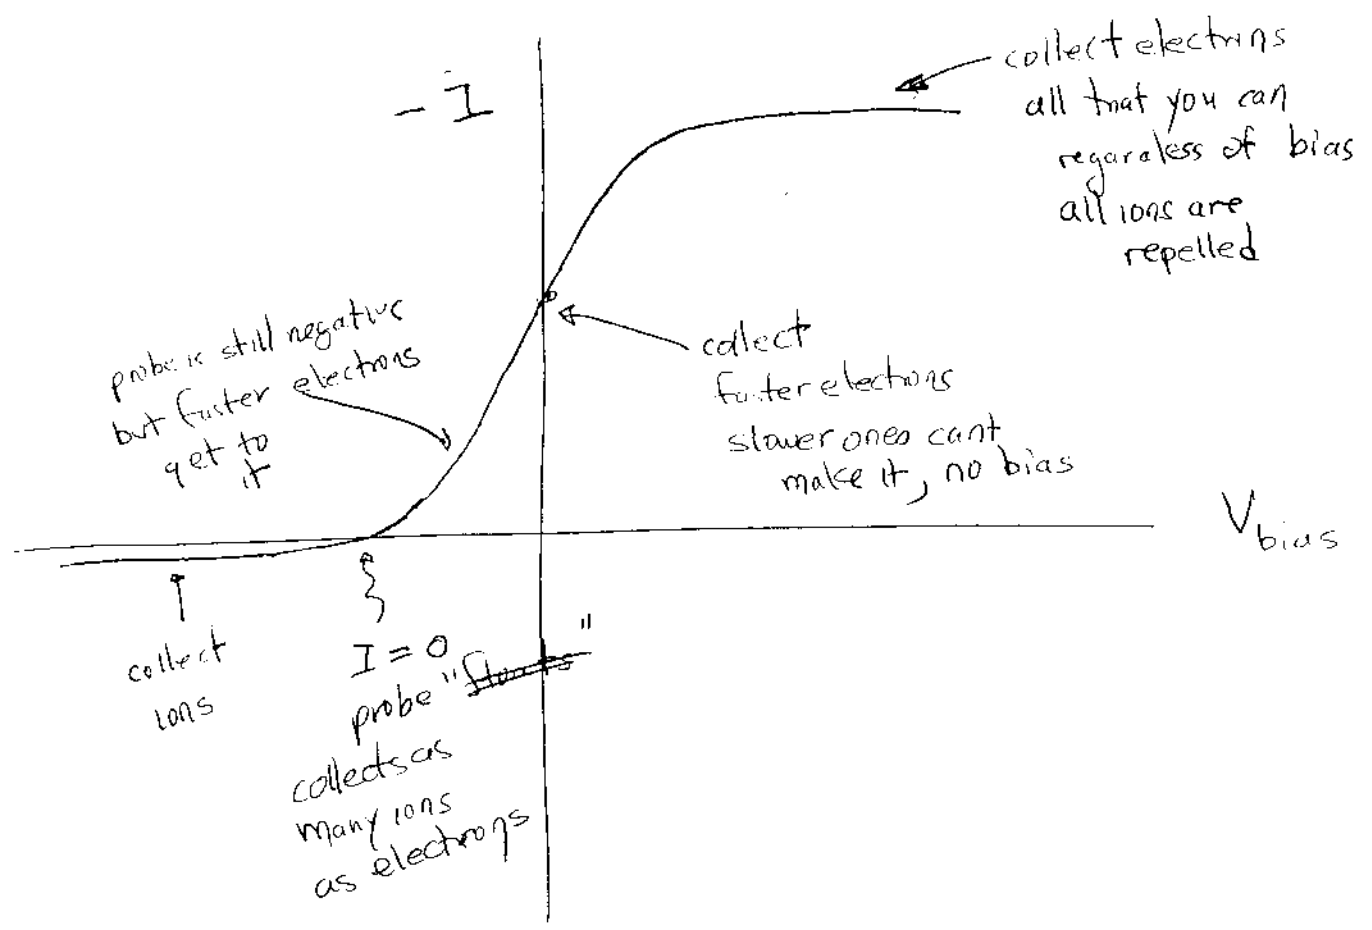 - I
collect electrons
all that you can
regardless of bias
all ions are
repelled
probe is still negative
but faster electrons
get to
it
collect
faster electrons
slower ones cant
make it, no bias
V bias
collect
ions
I = 0
probe "floats"
collects as
many ions
as electrons